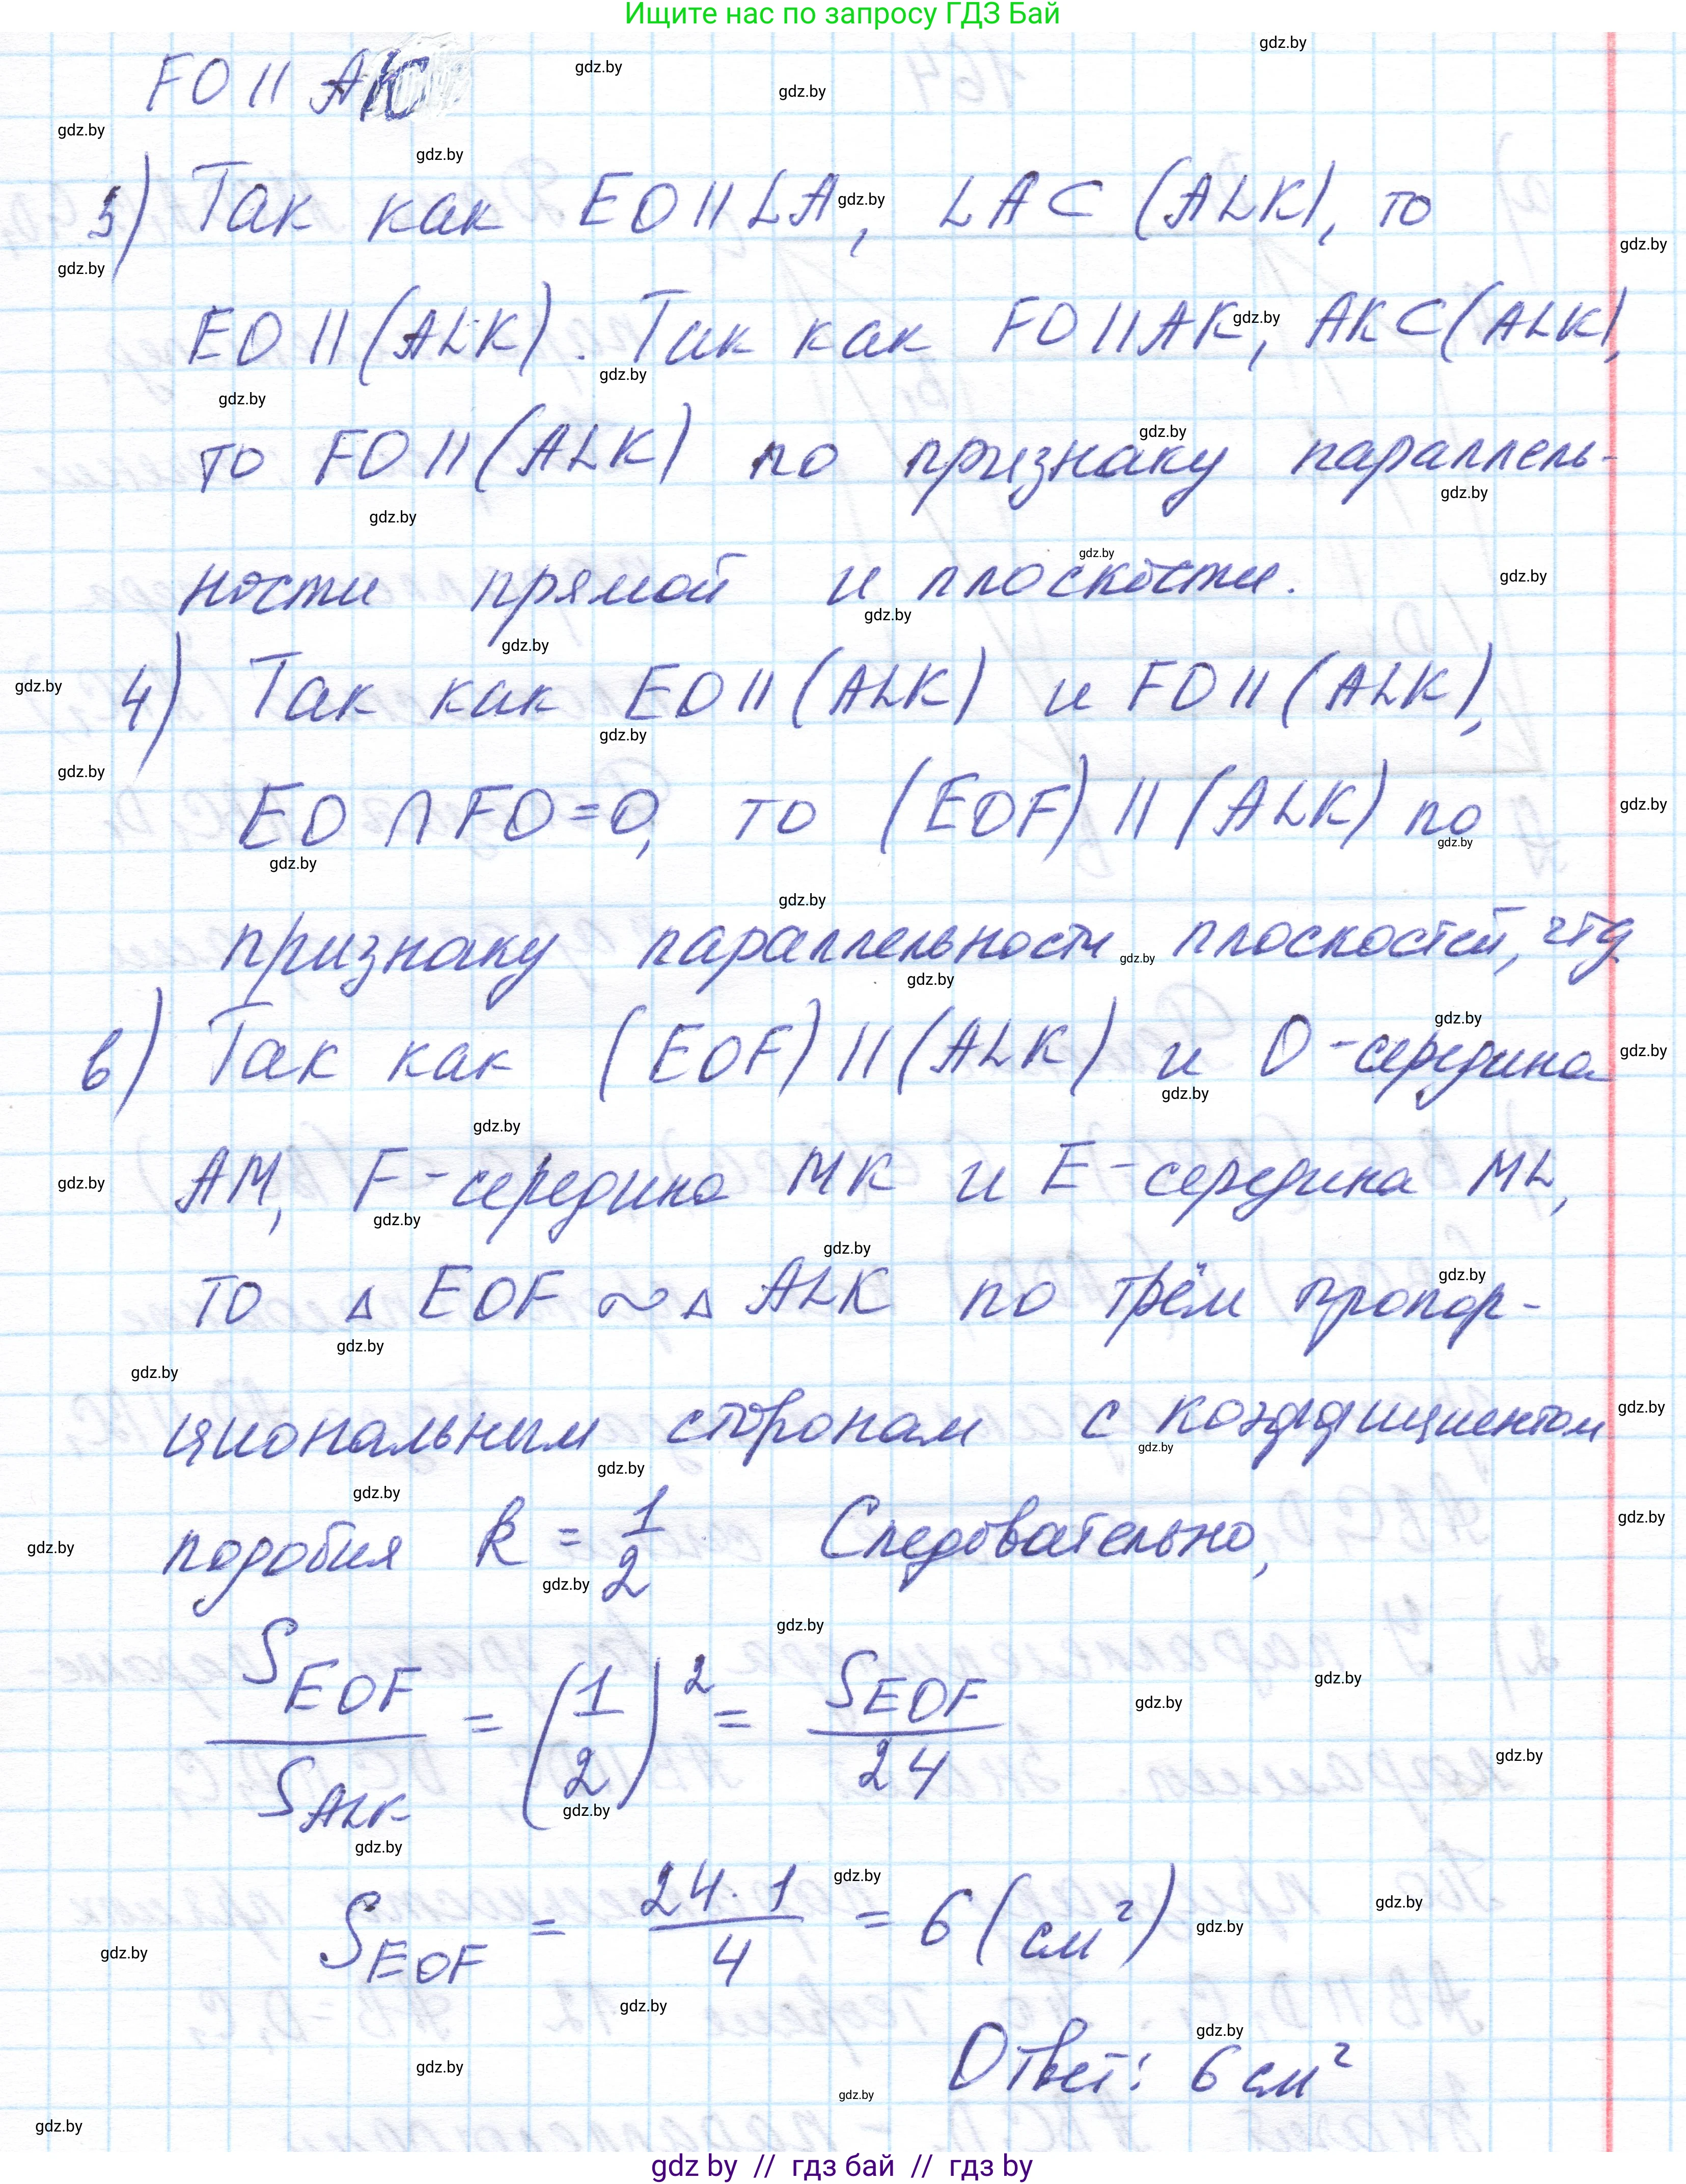 Ищите нас по запросу ГДЗ Бай
FO || AK
3) Так как EO || LA, LA ⊂ (ALK), то
EO || (ALK). Так как FO || AK, AK ⊂ (ALK),
то FO || (ALK) по признаку параллель-
ности прямой и плоскости.
4) Так как EO || (ALK) и FO || (ALK),
EO ∩ FO = O, то (EOF) || (ALK) по
признаку параллельности плоскостей, чтд
в) Так как (EOF) || (ALK) и O - середина
AM, F - середина MK и E - середина ML,
то △ EOF ~ △ ALK по трём пропор-
циональным сторонам с коэффициентом
подобия k = 1/2 Следовательно,
S_EOF / S_ALK = (1/2)² = S_EOF / 24
S_EOF = 24·1 / 4 = 6 (см²)
Ответ: 6 см²
gdz by // гдз бай // гдз by